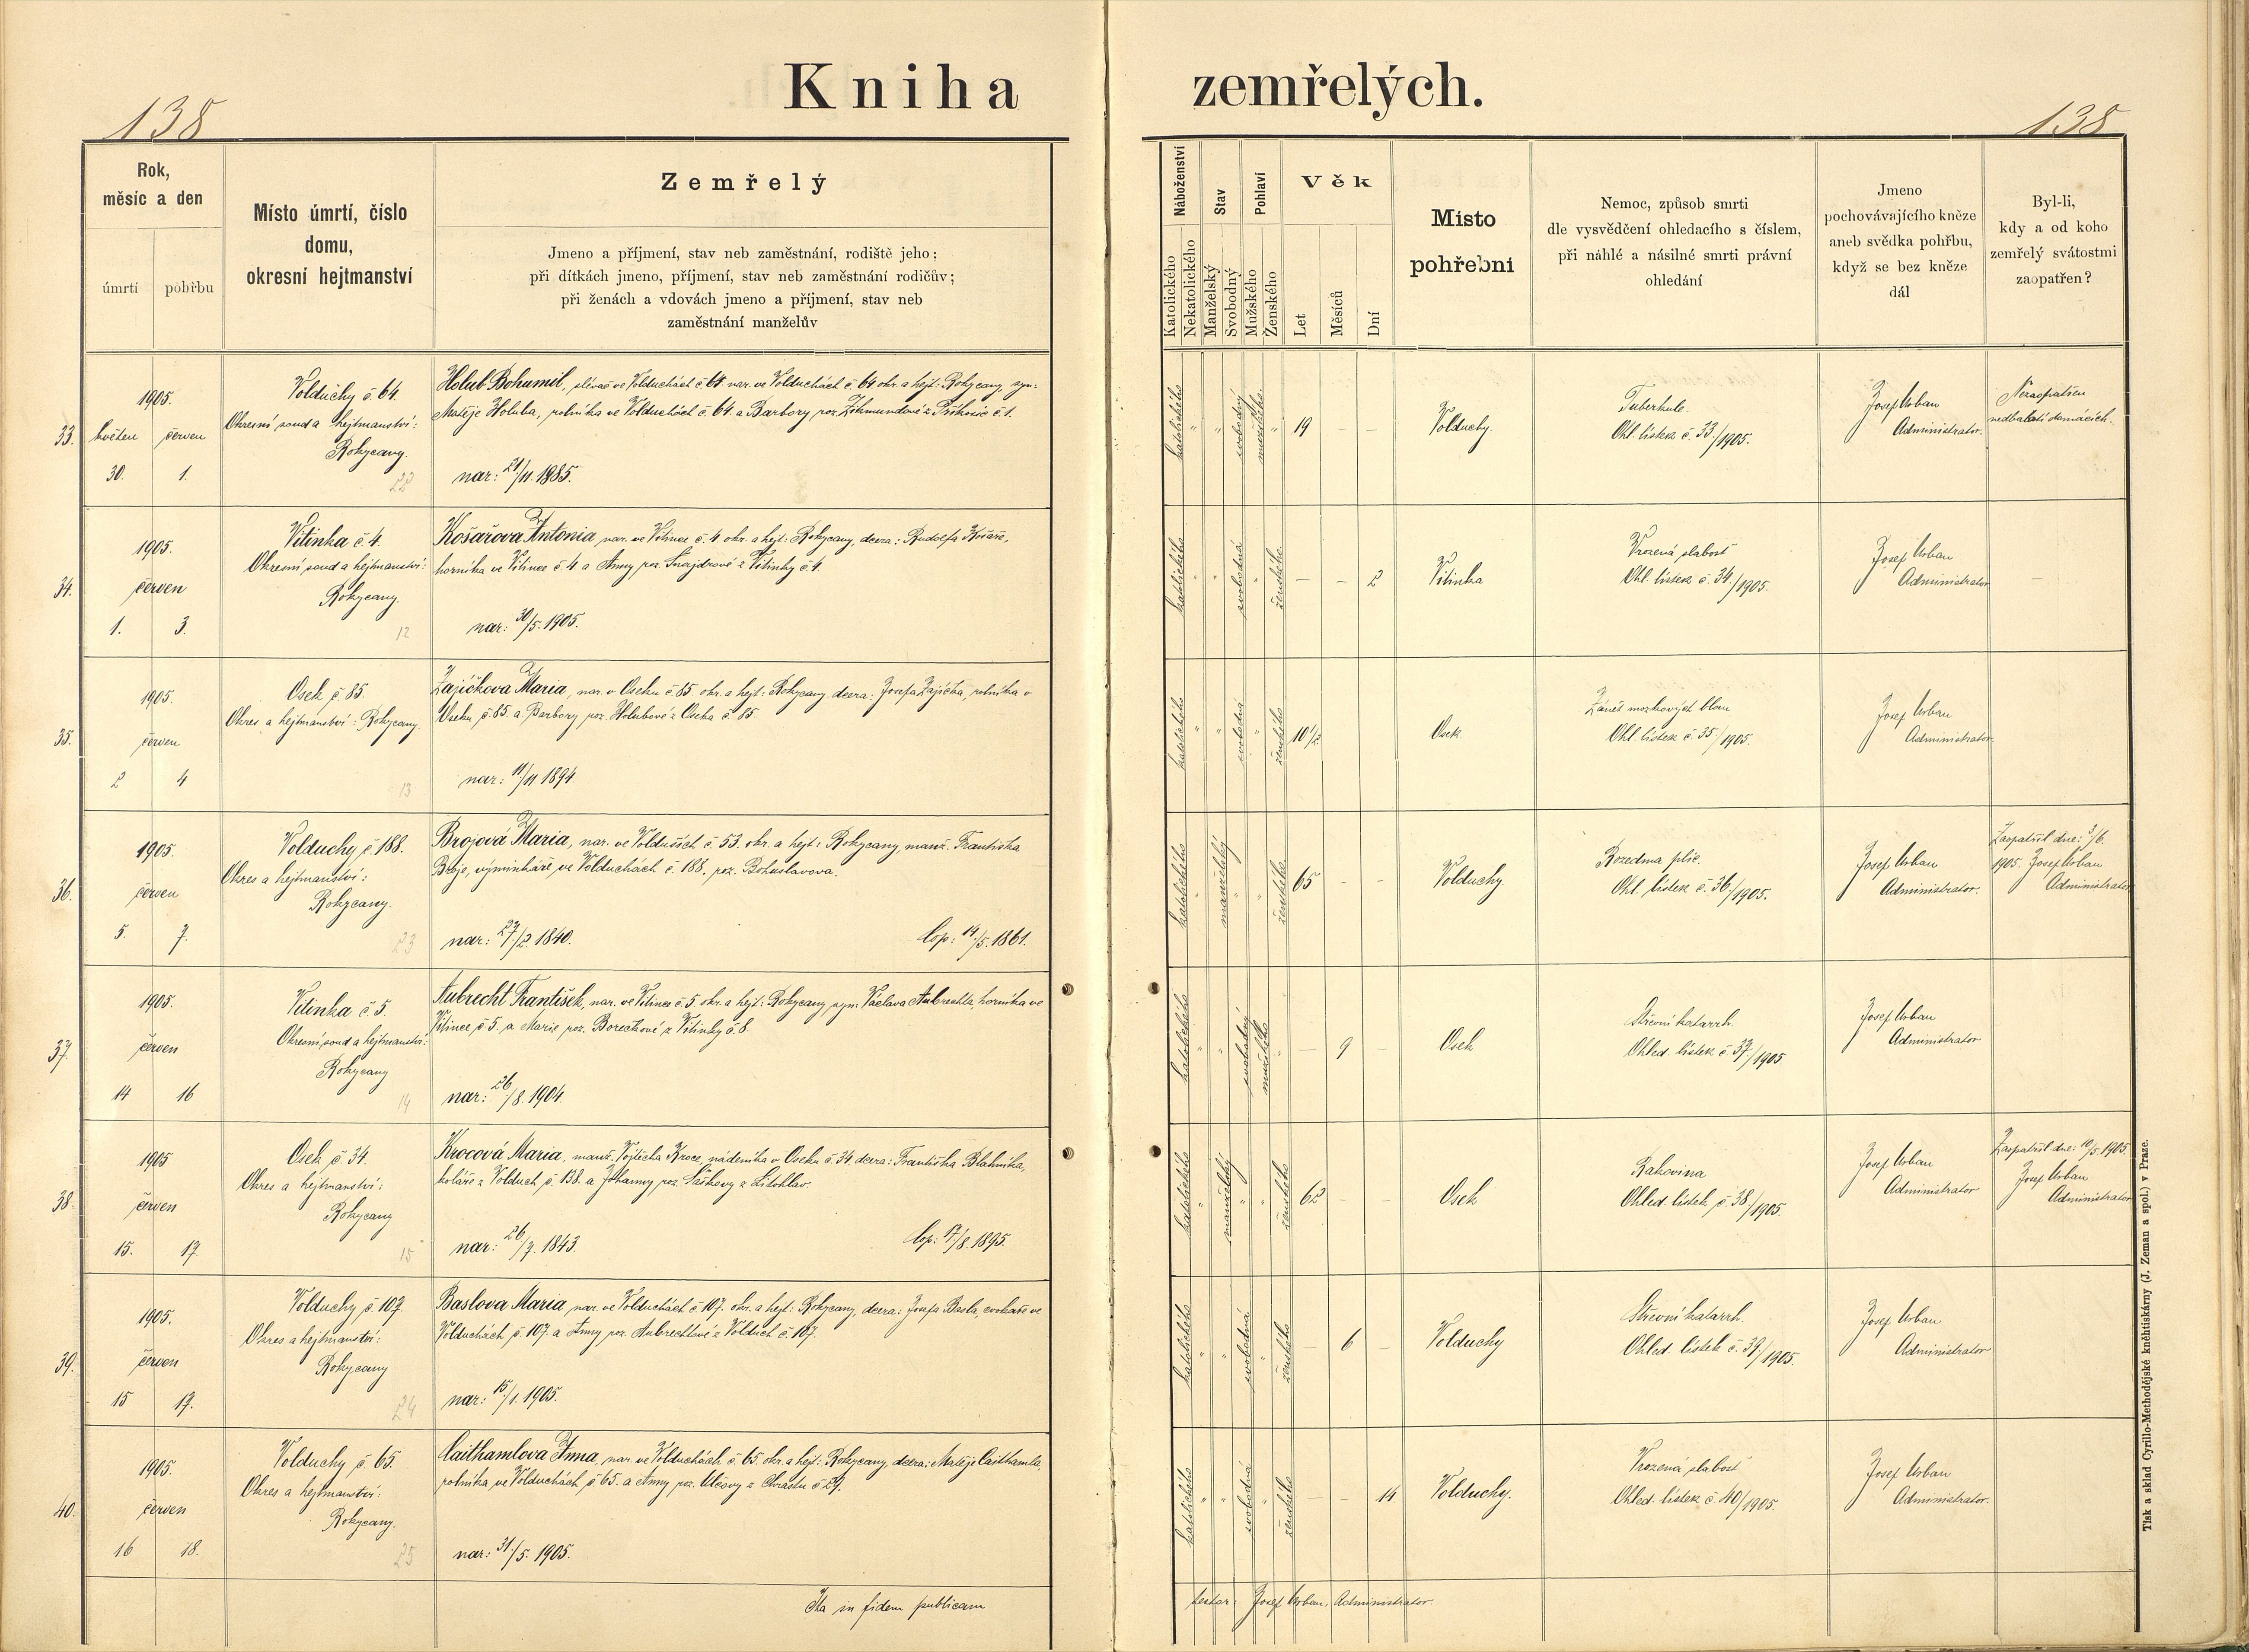 Kniha zemřelých.
138
138
Rok,
měsíc a den
úmrtí
pohřbu
Místo úmrtí, číslo
domu,
okresní hejtmanství
Zemřelý
Jmeno a příjmení, stav neb zaměstnání, rodiště jeho;
při dítkách jmeno, příjmení, stav neb zaměstnání rodičův;
při ženách a vdovách jmeno a příjmení, stav neb
zaměstnání manželův
Náboženství
Katolického
Nekatolického
Stav
Manželský
Svobodný
Pohlaví
Mužského
Ženského
Věk
Let
Měsíců
Dní
Místo
pohřební
Nemoc, způsob smrti
dle vysvědčení ohledacího s číslem,
při náhlé a násilné smrti právní
ohledání
Jmeno
pochovávajícího kněze
aneb svědka pohřbu,
když se bez kněze
dál
Byl-li,
kdy a od koho
zemřelý svátostmi
zaopatřen?
33.
1905.
květen červen
30. 1.
Volduchy č 64.
Okresní soud a hejtmanství:
Rokycany.
22
Holub Bohumil, slévač ve Volduchách č 64 nar. ve Volduchách č. 64 okr. a hejt: Rokycany, syn:
Matěje Holuba, rolníka ve Volduchách č. 64. a Barbory, roz. Zikmundové z Příkosic č 1.
nar: 21/11. 1885.
katolického " " svobodný mužského "
19 – –
Volduchy.
Tuberkule.
Ohl. lístek č. 33/1905.
Josef Urban
Administrator.
Nezaopatřen
nedbalostí domácích.
34.
1905.
červen
1. 3.
Vitinka č 4.
Okresní soud a hejtmanství:
Rokycany.
12
Košařova Antonia nar. ve Vitince č. 4. okr. a hejt: Rokycany, dcera: Rudolfa Košaře,
horníka ve Vitince č 4 a Anny roz. Šnajdrové z Vitinky č 4.
nar: 30/5. 1905.
katolického " " svobodná " ženského
– – 2
Vitinka
Vrozená slabost
Ohl. lístek č 34./1905.
Josef Urban
Administrator
–
35.
1905.
červen
2 4
Osek č 85.
Okres a hejtmanství: Rokycany.
13
Zajíčkova Maria, nar. v Oseku č 85 okr. a hejt: Rokycany, dcera: Josefa Zajíčka, rolníka v
Oseku, č 85. a Barbory roz. Holubové z Oseka č 85.
nar: 11/11 1894.
katolického " " svobodná " ženského
10 1/2
Osek
Zánět mozkových blan
Ohl. lístek č 35/1905.
Josef Urban
Administrator.
36.
1905.
červen
5. 7.
Volduchy č 188.
Okres a hejtmanství:
Rokycany.
23
Brojová Maria, nar. ve Volduších č. 53. okr. a hejt: Rokycany, manž. Františka
Broje, výminkáře ve Volduchách č. 188, roz. Bohuslavova.
nar: 27./2. 1840. Cop: 14/5. 1861.
katolického " manželský " " ženského.
65 – –
Volduchy.
Rozedma plic.
Ohl. lístek č. 36/1905.
Josef Urban
Administrator.
Zaopatřil dne: 3/6.
1905. Josef Urban
Administrator
37.
1905.
červen
14 16
Vitinka č 5.
Okresní soud a hejtmanství:
Rokycany
14
Aubrecht František, nar. ve Vitince č. 5. okr. a hejt: Rokycany, syn: Václava Aubrechta, horníka ve
Vitince č 5. a Marie roz. Borečkové z Vitinky č 8.
nar: 26/8. 1904.
katolického " " svobodný mužského "
– 9 –
Osek
Střevní katarrh.
Ohled. lístek č 37/1905.
Josef Urban
Administrator
38.
1905
červen
15. 17.
Osek č 34.
Okres a hejtmanství:
Rokycany
15
Krocová Maria, manž. Vojtěcha Kroce, nádeníka v Oseku č 34. dcera: Františka Blahníka,
koláře z Volduch č 138. a Johanny roz. Šaškovy z Litohlav.
nar: 26/7. 1843. Cop: 17/8. 1895.
katolického " manželský " " ženského
62 – –
Osek
Rakovina
Ohled. lístek č 38/1905.
Josef Urban
Administrator
Zaopatřil dne: 10/5 1905.
Josef Urban
Administrator
39.
1905.
červen
15 17.
Volduchy č 107.
Okres a hejtmanství:
Rokycany
24
Baslova Maria nar. ve Volduchách č 107. okr. a hejt: Rokycany, dcera: Josefa Basla, cvokaře ve
Volduchách, č. 107. a Anny roz. Aubrechtové z Volduch č. 107.
nar: 15/1. 1905.
katolického " " svobodná " ženského
– 6 –
Volduchy
Střevní katarrh.
Ohled. lístek č. 39/1905.
Josef Urban
Administrator
40.
1905.
červen
16 18.
Volduchy č. 65.
Okres a hejtmanství:
Rokycany.
25
Caithamlova Anna, nar. ve Volduchách č. 65. okr. a hejt: Rokycany, dcera: Matěje Caithamla,
rolníka ve Volduchách, č 65. a Anny roz. Ulčovy z Chrástu č 29.
nar: 31/5. 1905.
katolického " " svobodná " ženského
– – 14
Volduchy.
Vrozená slabost
Ohled. lístek č 40/1905.
Josef Urban
Administrator.
Ita in fidem publicam
testor: Josef Urban, Administrator.
Tisk a sklad Cyrillo-Methodějské kněhtiskárny (J. Zeman a spol.) v Praze.